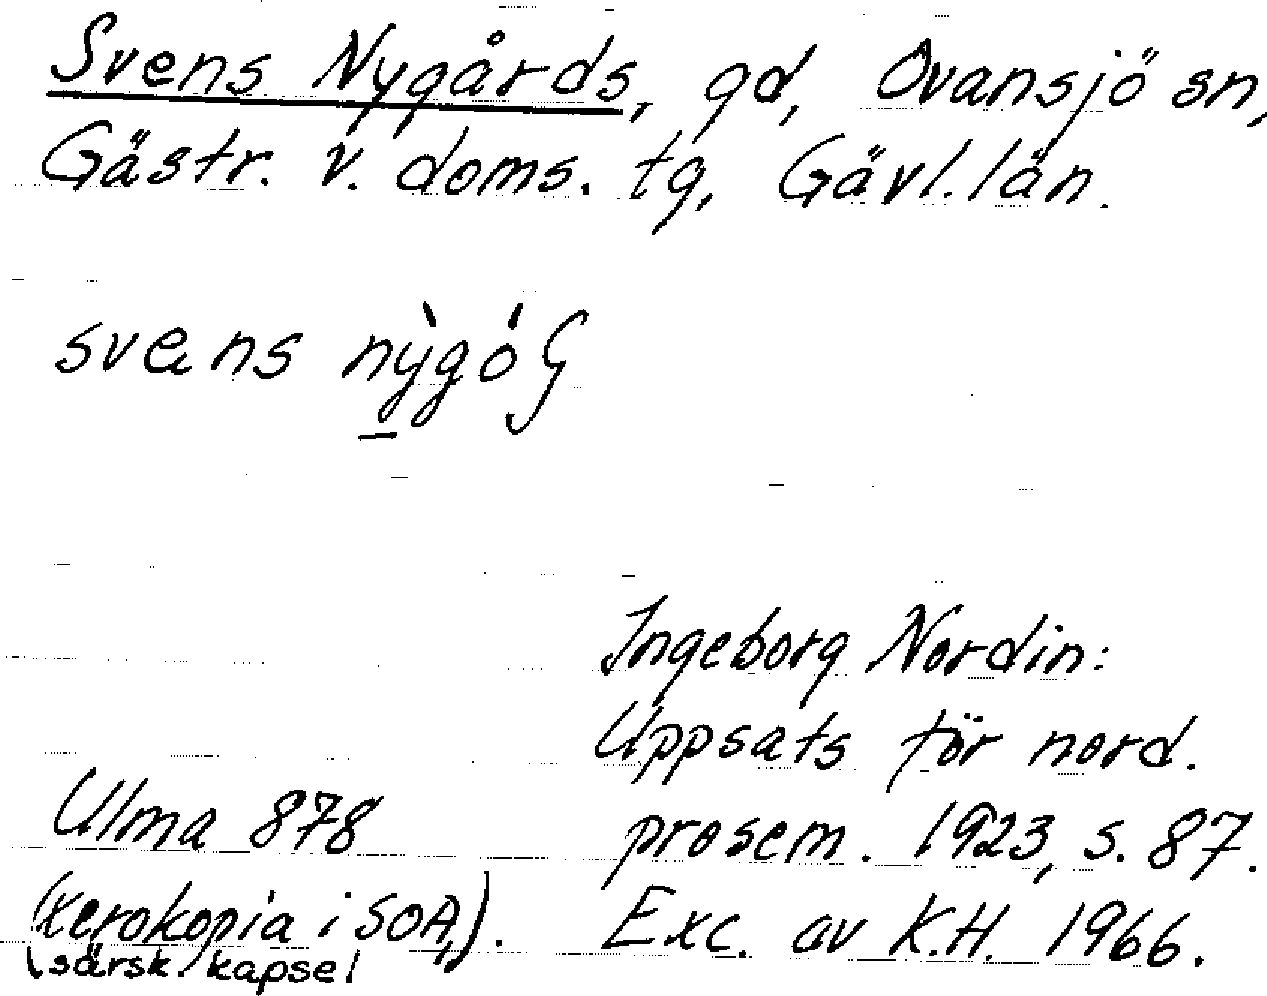 Svens Nygårds, gd, Ovansjö sn,
Gästr. v. doms. tg, Gävl. län.
svens
Ingeborg Nordin:
Uppsats för nord.
prosem. 1923, s. 87.
Exc. av K.H. 1966.
Ulma 878
(xerokopia i SOA,
särsk. kapsel).